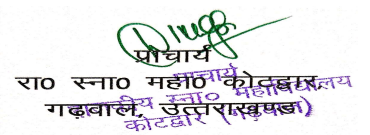 प्राचार्य
रा० स्ना० महा० कोटद्वार
गढ़वाल, उत्तराखण्ड
प्राचार्य
स्ना० महाविद्यालय
कोटद्वार (गढ़वाल)